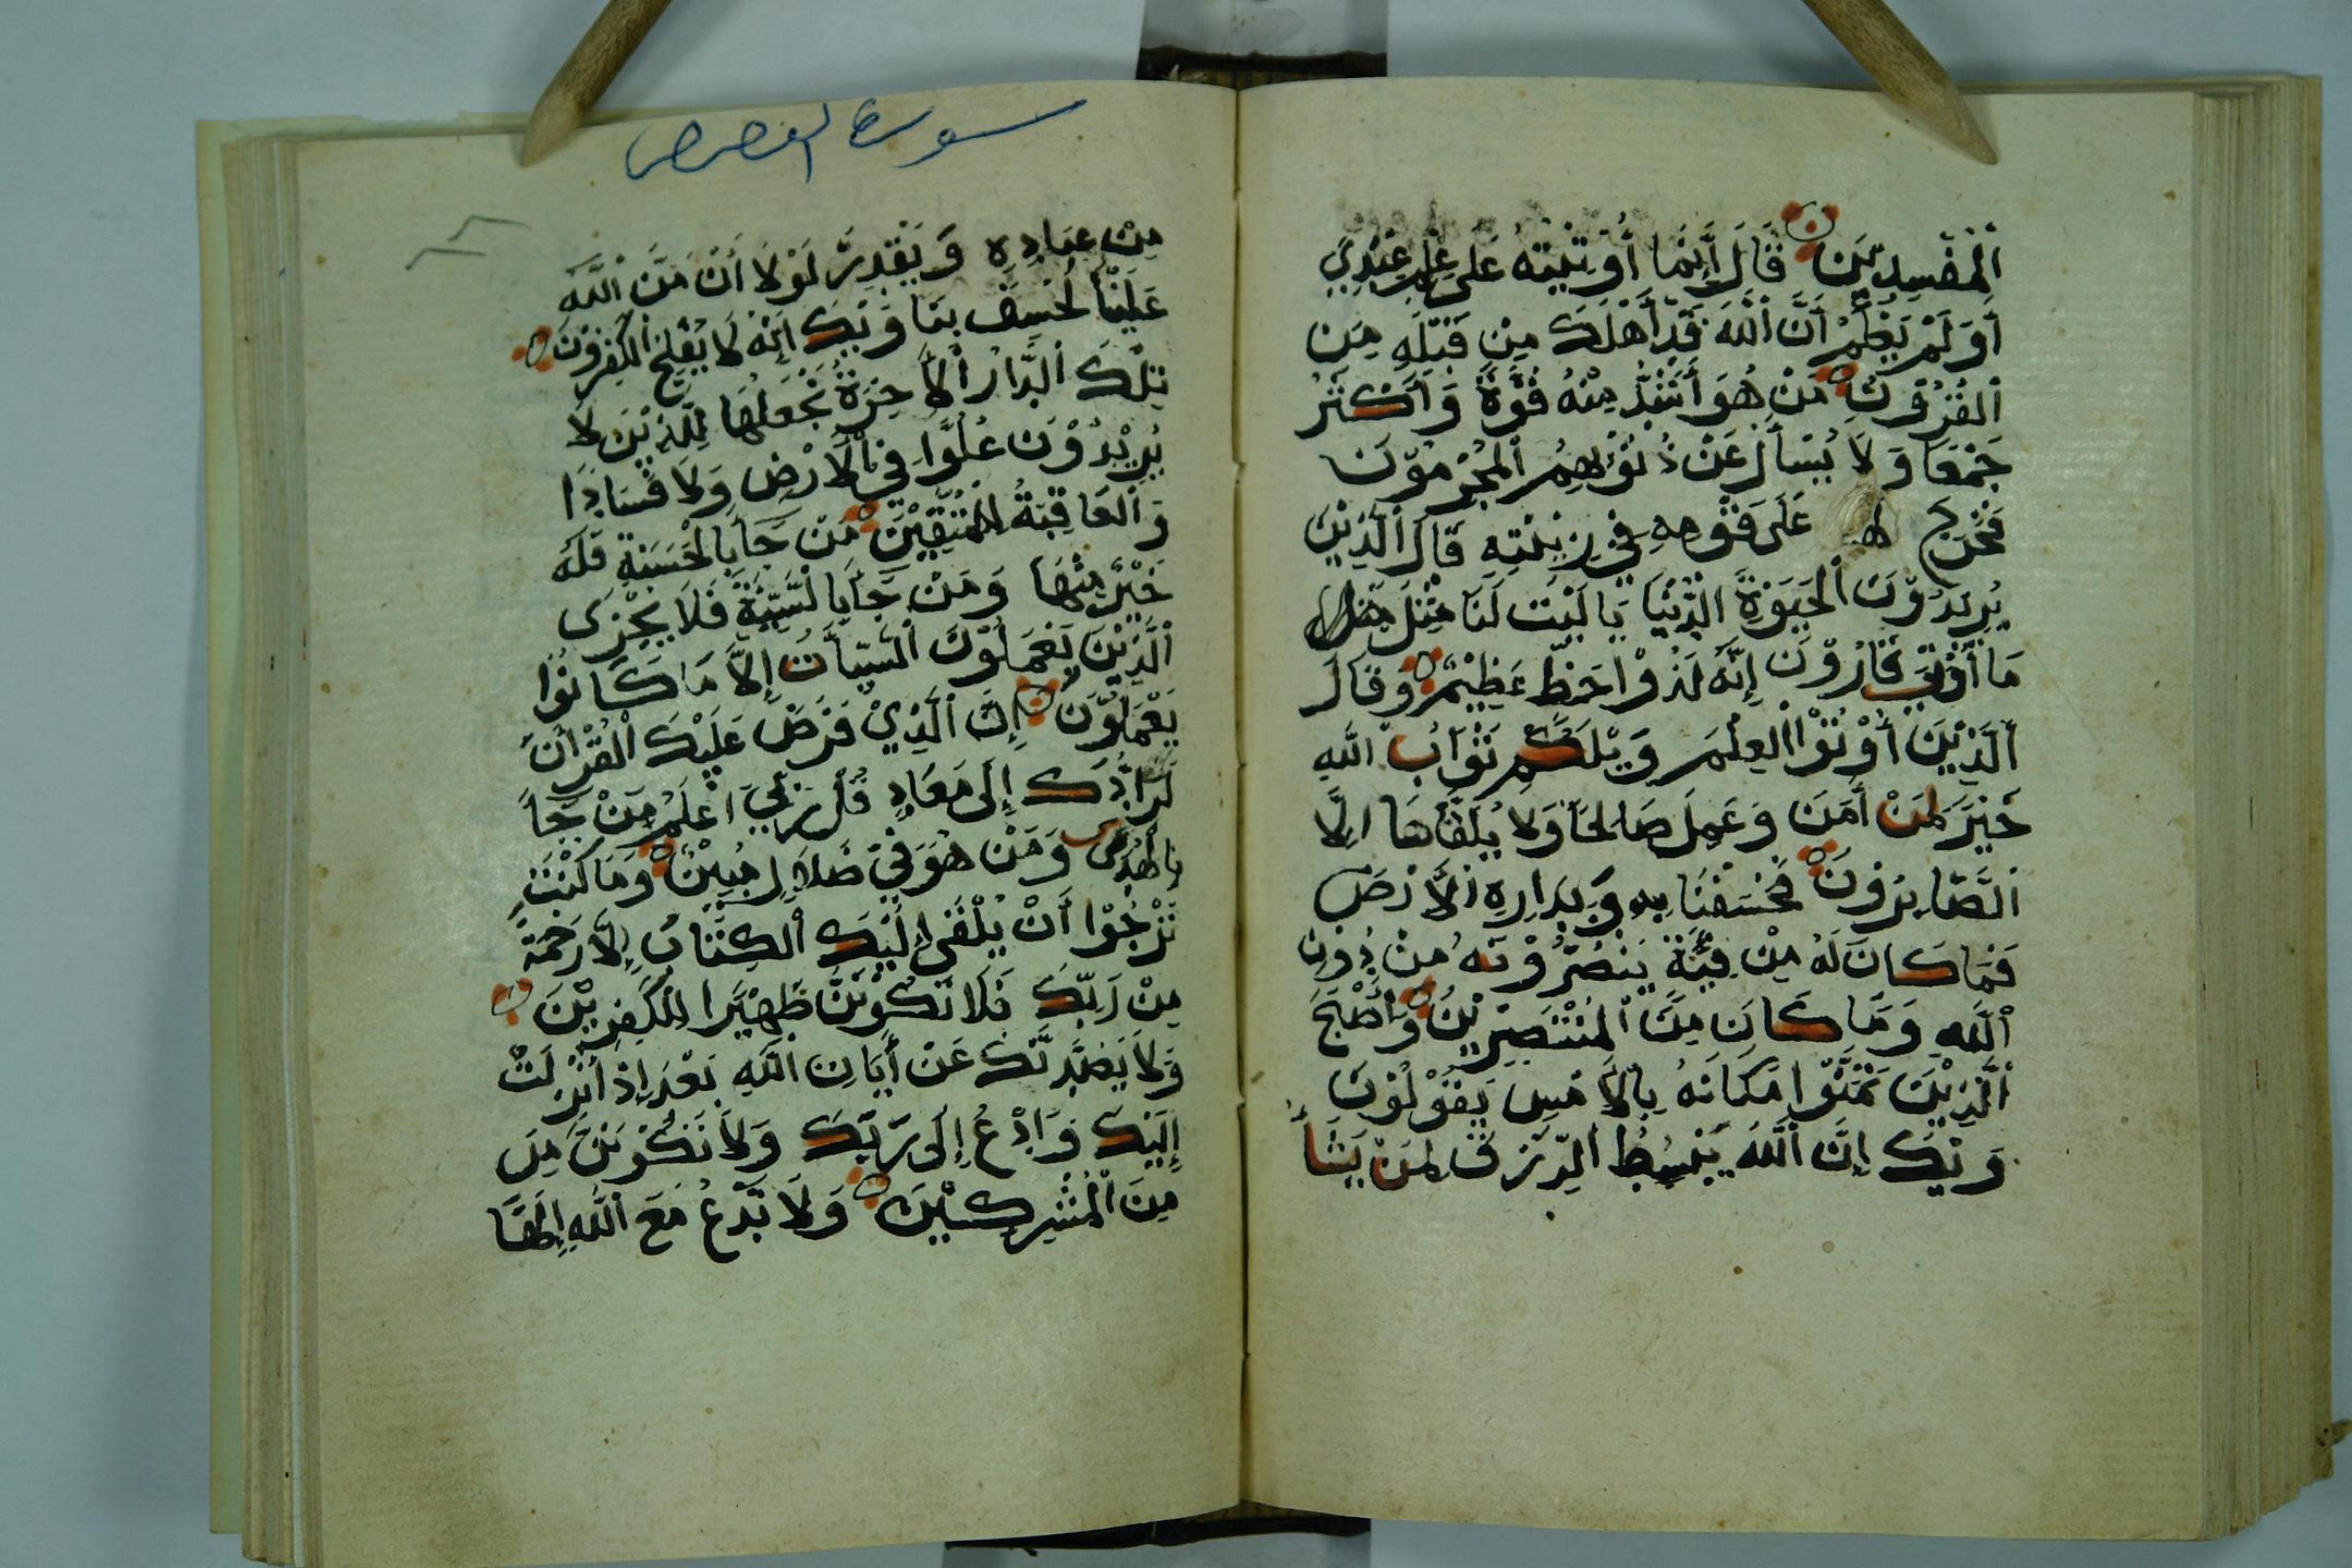 ٱلْمُفْسِدِيْنَ قَالَ إِنَّمَا أُوْتِيْتُهُ عَلَى عِلْمٍ عِنْدِيْ
أَوَلَمْ يَعْلَمْ أَنَّ ٱللَّهَ قَدْ أَهْلَكَ مِنْ قَبْلِهِ مِنَ
ٱلْقُرُوْنِ مَنْ هُوَ أَشَدُّ مِنْهُ قُوَّةً وَأَكْثَرُ
جَمْعًا وَلَا يُسْأَلُ عَنْ ذُنُوْبِهِمُ ٱلْمُجْرِمُوْنَ
فَخَرَجَ عَلَى قَوْمِهِ فِيْ زِيْنَتِهِ قَالَ ٱلَّذِيْنَ
يُرِيْدُوْنَ ٱلْحَيَوٰةَ ٱلدُّنْيَا يَا لَيْتَ لَنَا مِثْلَ
مَا أُوْتِيَ قَارُوْنَ إِنَّهُ لَذُوْا حَظٍّ عَظِيْمٍ وَقَالَ
ٱلَّذِيْنَ أُوْتُوْا ٱلْعِلْمَ وَيْلَكُمْ ثَوَابُ ٱللَّهِ
خَيْرٌ لِمَنْ أَمَنَ وَعَمِلَ صَالِحًا وَلَا يُلَقَّاهَا إِلَّا
ٱلصَّابِرُوْنَ فَخَسَفْنَا بِهِ وَبِدَارِهِ ٱلْأَرْضَ
فَمَا كَانَ لَهُ مِنْ فِئَةٍ يَنْصُرُوْنَهُ مِنْ دُوْنِ
ٱللَّهِ وَمَا كَانَ مِنَ ٱلْمُنْتَصِرِيْنَ وَأَصْبَحَ
ٱلَّذِيْنَ تَمَنَّوْا مَكَانَهُ بِالْأَمْسِ يَقُوْلُوْنَ
وَيْكَ إِنَّ ٱللَّهَ يَبْسُطُ ٱلرِّزْقَ لِمَنْ يَشَأُ
سورة القصص
مِنْ عِبَادِهِ وَيَقْدِرُ لَوْلَا أَنْ مَنَّ ٱللَّهُ
عَلَيْنَا لَخَسَفَ بِنَا وَيْكَ إِنَّهُ لَا يُفْلِحُ ٱلْكَٰفِرُوْنَ
تِلْكَ ٱلدَّارُ ٱلْأَخِرَةُ نَجْعَلُهَا لِلَّذِيْنَ لَا
يُرِيْدُوْنَ عُلُوًّا فِي ٱلْأَرْضِ وَلَا فَسَادًا
وَٱلْعَاقِبَةُ لِلْمُتَّقِيْنَ مَنْ جَأَ بِالْحَسَنَةِ فَلَهُ
خَيْرٌ مِنْهَا وَمَنْ جَأَ بِالسَّيِّئَةِ فَلَا يُجْزَى
ٱلَّذِيْنَ يَعْمَلُوْنَ ٱلسَّيِّأَتِ إِلَّا مَا كَانُوْا
يَعْمَلُوْنَ إِنَّ ٱلَّذِيْ فَرَضَ عَلَيْكَ ٱلْقُرْأَنَ
لَرَادُّكَ إِلَى مَعَادٍ قُلْ رَبِّيْ أَعْلَمُ مَنْ جَأَ
بِالْهُدَى وَمَنْ هُوَ فِيْ ضَلَالٍ مُبِيْنٍ وَمَا كُنْتَ
تَرْجُوْا أَنْ يُلْقَى إِلَيْكَ ٱلْكِتَابُ إِلَّا رَحْمَةً
مِنْ رَبِّكَ فَلَا تَكُوْنَنَّ ظَهِيْرًا لِلْكَٰفِرِيْنَ
وَلَا يَصُدُّنَّكَ عَنْ أَيَاتِ ٱللَّهِ بَعْدَ إِذْ أُنْزِلَتْ
إِلَيْكَ وَادْعُ إِلَى رَبِّكَ وَلَا تَكُوْنَنَّ مِنَ
مِنَ ٱلْمُشْرِكِيْنَ وَلَا تَدْعُ مَعَ ٱللَّهِ إِلَهًا